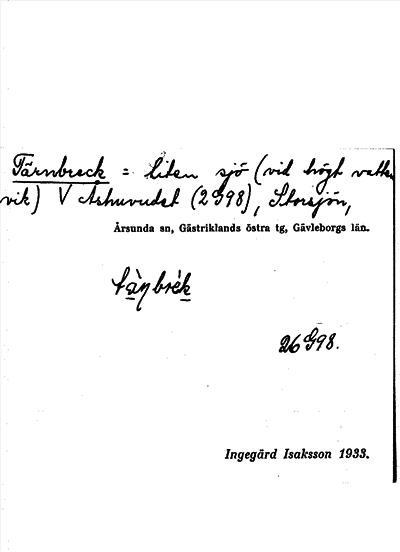 Tärnbreck = liten sjö (vid högt vatten
vik) V Ashuvudet (2G98), Storsjön,
Årsunda sn, Gästriklands östra tg, Gävleborgs län.
26G98.
Ingegärd Isaksson 1933.